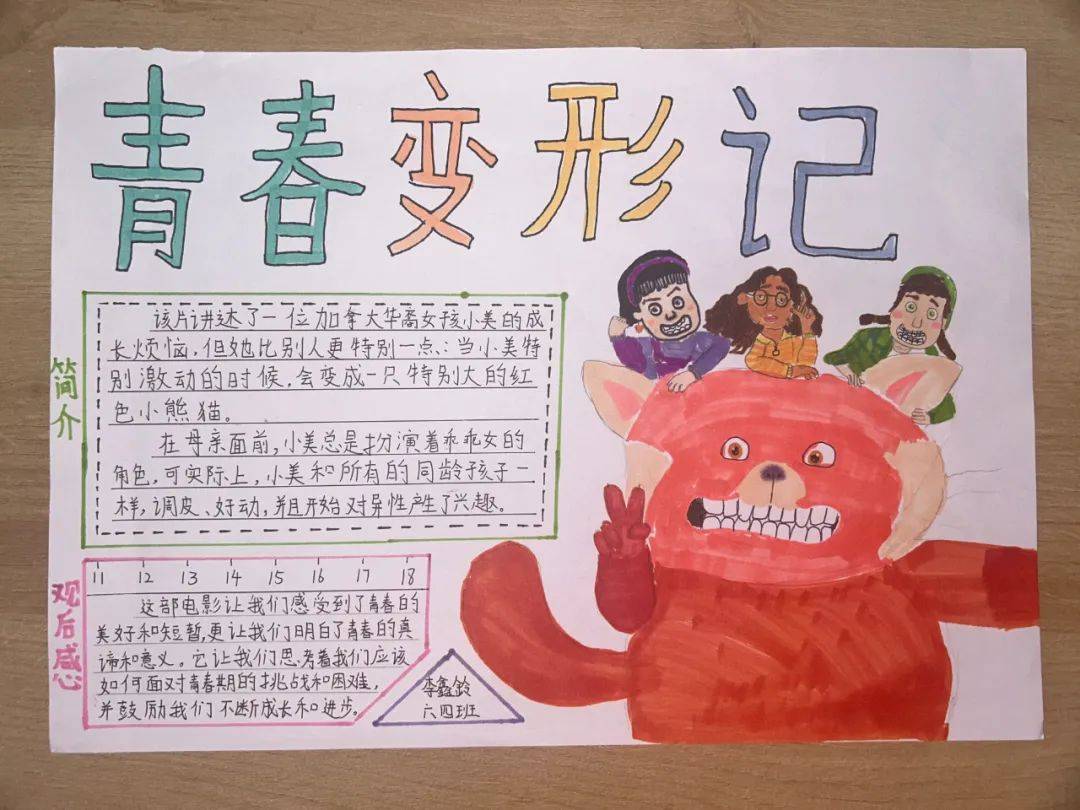 青春变形记
简介
该片讲述了一位加拿大华裔女孩小美的成
长烦恼，但她比别人更特别一点：当小美特
别激动的时候，会变成一只特别大的红
色小熊猫。
在母亲面前，小美总是扮演着乖乖女的
角色，可实际上，小美和所有的同龄孩子一
样，调皮、好动，并且开始对异性产生了兴趣。
观后感
11 12 13 14 15 16 17 18
这部电影让我们感受到了青春的
美好和短暂，更让我们明白了青春的真
谛和意义。它让我们思考着我们应该
如何面对青春期的挑战和困难，
并鼓励我们不断成长和进步。
李鑫铃
六四班